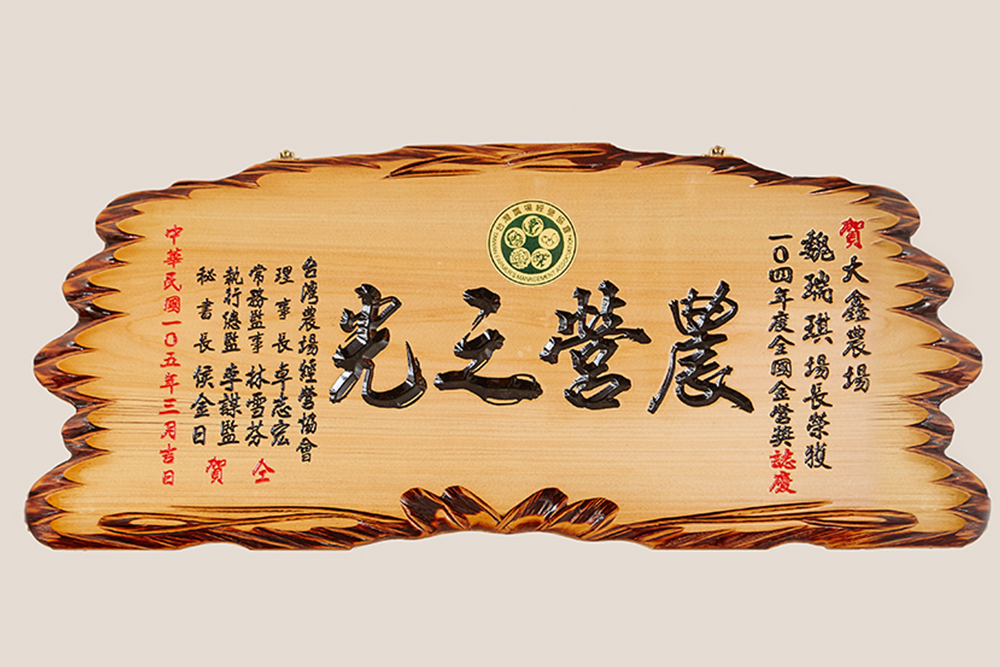 賀大鑫農場
魏瑞琪場長榮獲
一0四年度全國金營獎誌慶
農營之光
台灣農場經營協會
TAIWAN FARMERS MANAGEMENT ASSOCIATION
台灣農場經營協會
理事長卓志宏
常務監事林雪芬
執行總監李謀監
秘書長侯金日
仝賀
中華民國一0五年三月吉日